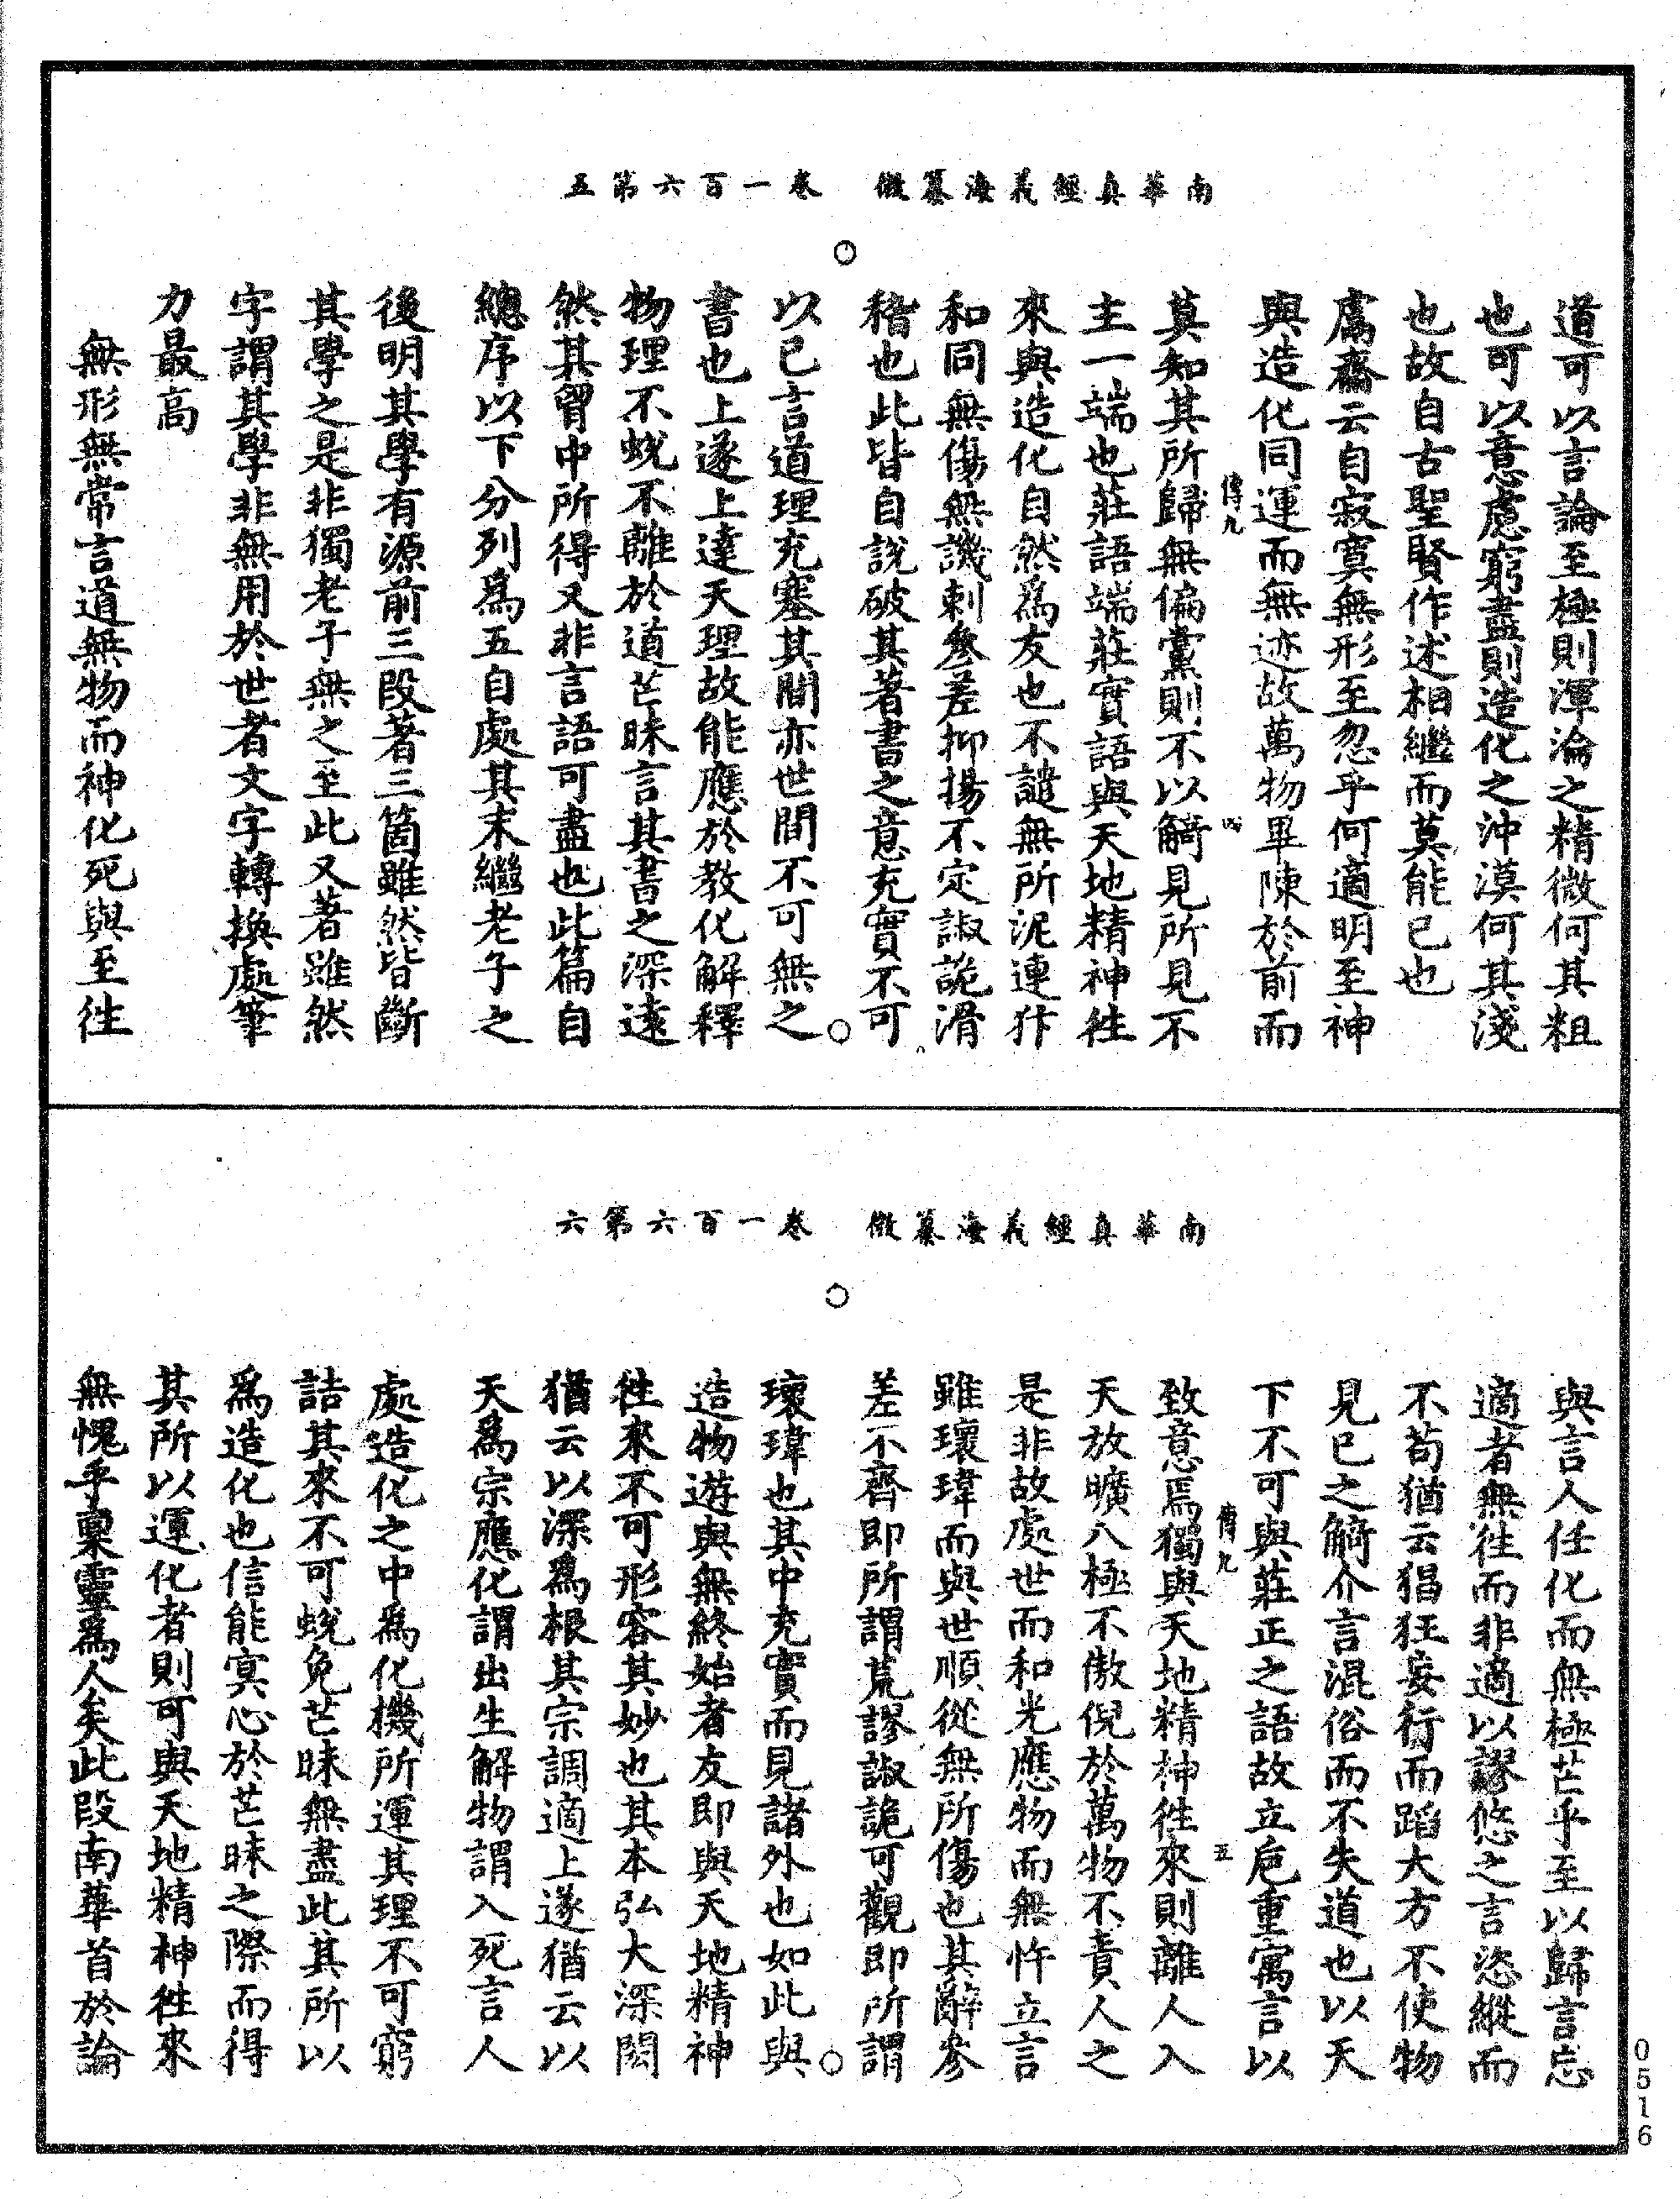 南華真經義海纂微　卷一百六第五
道可以言論至極則渾淪之精微何其粗
也可以意慮窮盡則造化之沖漠何其淺
也故自古聖賢作述相繼而莫能已也
鬳齋云自寂寞無形至忽乎何適明至神
與造化同運而無迹故萬物畢陳於前而
傳九　四
莫知其所歸無偏黨則不以觭見所見不
主一端也莊語端莊實語與天地精神徃
來與造化自然爲友也不譴無所泥連犿
和同無傷無譏刺參差抑揚不定諔詭滑
稽也此皆自說破其著書之意充實不可
以已言道理充塞其間亦世間不可無之
書也上遂上達天理故能應於教化解釋
物理不蛻不離於道芒昧言其書之深遠
然其胷中所得又非言語可盡也此篇自
總序以下分列爲五自處其末繼老子之
後明其學有源前三段著三箇雖然皆斷
其學之是非獨老子無之至此又著雖然
字謂其學非無用於世者文字轉換處筆
力最高
無形無常言道無物而神化死與至徃
南華真經義海纂微　卷一百六第六
與言人任化而無極芒乎至以歸言忘
適者無徃而非適以謬悠之言恣縱而
不苟猶云猖狂妄行而蹈大方不使物
見已之觭介言混俗而不失道也以天
下不可與莊正之語故立巵重寓言以
傳九　五
致意焉獨與天地精神徃來則離人入
天放曠八極不傲倪於萬物不責人之
是非故處世而和光應物而無忤立言
雖瓌瑋而與世順從無所傷也其辭參
差不齊即所謂荒謬諔詭可觀即所謂
瓌瑋也其中充實而見諸外也如此與
造物遊與無終始者友即與天地精神
徃來不可形容其妙也其本弘大深閎
猶云以深爲根其宗調適上遂猶云以
天爲宗應化謂出生解物謂入死言人
處造化之中爲化機所運其理不可窮
詰其來不可蛻免芒昧無盡此其所以
爲造化也信能冥心於芒昧之際而得
其所以運化者則可與天地精神徃來
無愧乎稟靈爲人矣此段南華首於論
0516